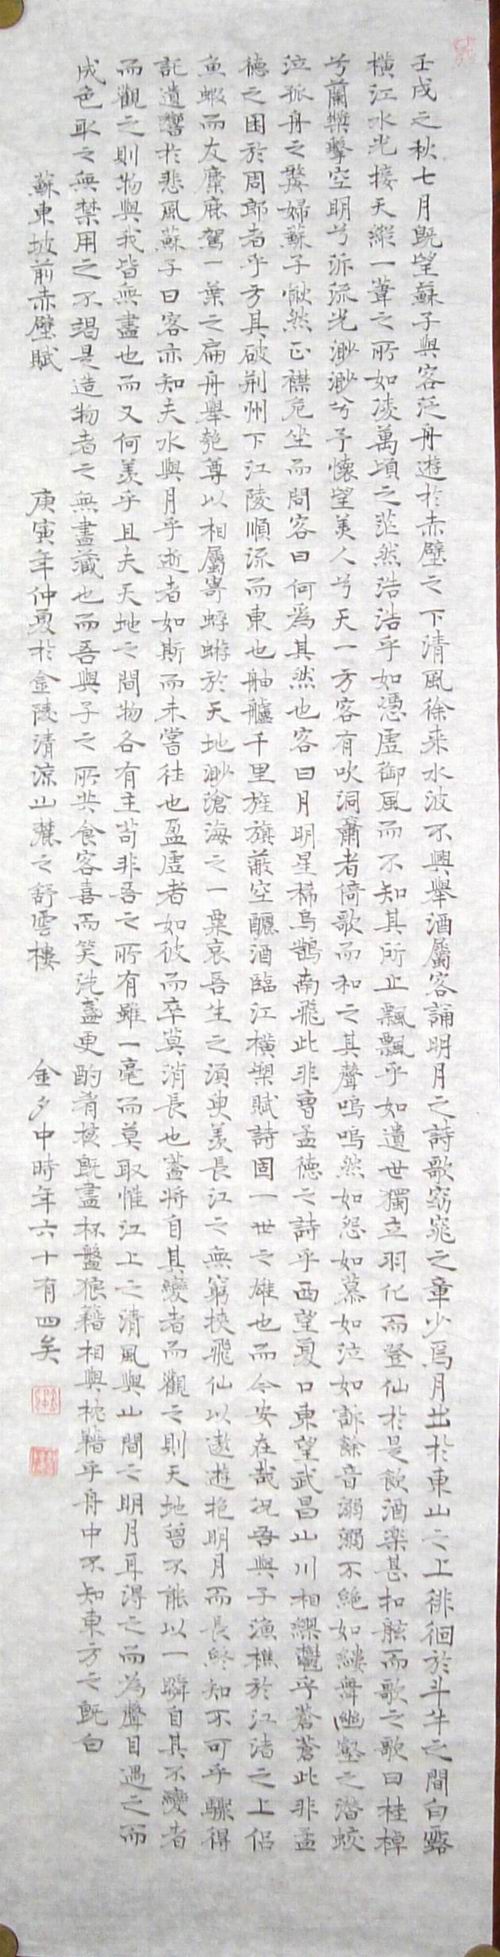 壬戌之秋七月既望蘇子與客泛舟遊於赤壁之下清風徐來水波不興舉酒屬客誦明月之詩歌窈窕之章少焉月出於東山之上徘徊於斗牛之間白露
橫江水光接天縱一葦之所如凌萬頃之茫然浩浩乎如憑虛御風而不知其所止飄飄乎如遺世獨立羽化而登仙於是飲酒樂甚扣舷而歌之歌曰桂棹
兮蘭槳擊空明兮泝流光渺渺兮予懷望美人兮天一方客有吹洞簫者倚歌而和之其聲嗚嗚然如怨如慕如泣如訴餘音嫋嫋不絕如縷舞幽壑之潛蛟
泣孤舟之嫠婦蘇子愀然正襟危坐而問客曰何為其然也客曰月明星稀烏鵲南飛此非曹孟德之詩乎西望夏口東望武昌山川相繆鬱乎蒼蒼此非孟
德之困於周郎者乎方其破荊州下江陵順流而東也舳艫千里旌旗蔽空釃酒臨江橫槊賦詩固一世之雄也而今安在哉況吾與子漁樵於江渚之上侶
魚蝦而友麋鹿駕一葉之扁舟舉匏尊以相屬寄蜉蝣於天地渺滄海之一粟哀吾生之須臾羨長江之無窮挾飛仙以遨遊抱明月而長終知不可乎驟得
託遺響於悲風蘇子曰客亦知夫水與月乎逝者如斯而未嘗往也盈虛者如彼而卒莫消長也蓋將自其變者而觀之則天地曾不能以一瞬自其不變者
而觀之則物與我皆無盡也而又何羨乎且夫天地之間物各有主苟非吾之所有雖一毫而莫取惟江上之清風與山間之明月耳得之而為聲目遇之而
成色取之無禁用之不竭是造物者之無盡藏也而吾與子之所共食客喜而笑洗盞更酌肴核既盡杯盤狼藉相與枕藉乎舟中不知東方之既白
蘇東坡前赤壁賦 庚寅年仲夏於金陵清涼山麓之舒雲樓 金夕中時年六十有四矣